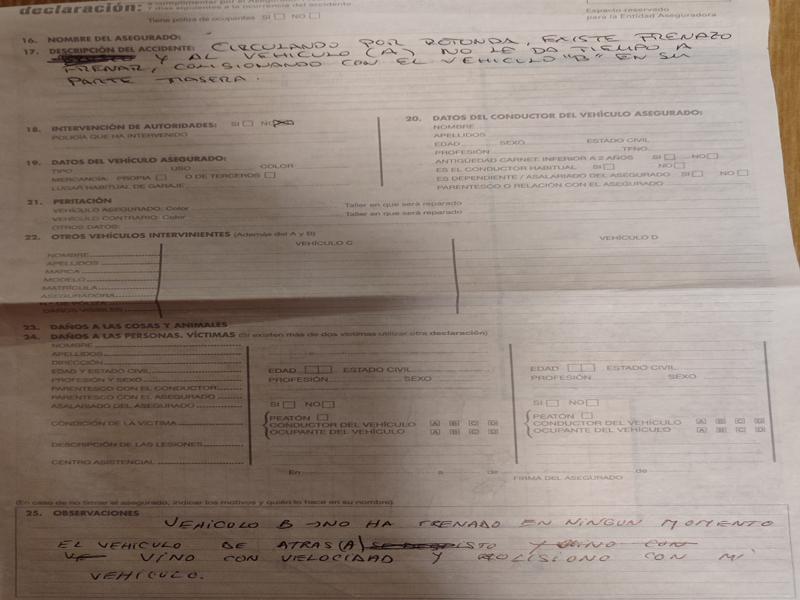 declaración:
a cumplimentar por el Asegurado
7 días siguientes a la ocurrencia del accidente
Tiene póliza de ocupantes SI NO
Espacio reservado
para la Entidad Aseguradora
16. NOMBRE DEL ASEGURADO:
17. DESCRIPCIÓN DEL ACCIDENTE: CIRCULANDO POR ROTONDA, EXISTE FRENAZO
Y AL VEHICULO (A) NO LE DA TIEMPO A
FRENAR, COLISIONANDO CON EL VEHICULO "B" EN SU
PARTE TRASERA.
18. INTERVENCIÓN DE AUTORIDADES: SI NO
POLICÍA QUE HA INTERVENIDO
19. DATOS DEL VEHÍCULO ASEGURADO:
TIPO USO COLOR
MERCANCÍA: PROPIA O DE TERCEROS
LUGAR HABITUAL DE GARAJE
20. DATOS DEL CONDUCTOR DEL VEHÍCULO ASEGURADO:
NOMBRE
APELLIDOS
EDAD SEXO ESTADO CIVIL
PROFESIÓN TFNO.
ANTIGÜEDAD CARNET INFERIOR A 2 AÑOS SI NO
ES EL CONDUCTOR HABITUAL SI NO
ES DEPENDIENTE / ASALARIADO DEL ASEGURADO SI NO
PARENTESCO O RELACIÓN CON EL ASEGURADO
21. PERITACIÓN
VEHÍCULO ASEGURADO: Color Taller en que será reparado
VEHÍCULO CONTRARIO: Color Taller en que será reparado
OTROS DATOS:
22. OTROS VEHÍCULOS INTERVINIENTES (Además del A y B)
VEHÍCULO C VEHÍCULO D
NOMBRE
APELLIDOS
MARCA
MODELO
MATRÍCULA
ASEGURADORA
N.º DE PÓLIZA
DAÑOS VISIBLES
23. DAÑOS A LAS COSAS Y ANIMALES
24. DAÑOS A LAS PERSONAS. VÍCTIMAS (Si existen más de dos víctimas utilizar otra declaración)
NOMBRE
APELLIDOS
DIRECCIÓN
EDAD Y ESTADO CIVIL
PROFESIÓN Y SEXO
PARENTESCO CON EL CONDUCTOR
PARENTESCO CON EL ASEGURADO
ASALARIADO DEL ASEGURADO
CONDICIÓN DE LA VÍCTIMA
DESCRIPCIÓN DE LAS LESIONES
CENTRO ASISTENCIAL
EDAD ESTADO CIVIL
PROFESIÓN SEXO
SI NO
PEATÓN
CONDUCTOR DEL VEHÍCULO A B C D
OCUPANTE DEL VEHÍCULO A B C D
EDAD ESTADO CIVIL
PROFESIÓN SEXO
SI NO
PEATÓN
CONDUCTOR DEL VEHÍCULO A B C D
OCUPANTE DEL VEHÍCULO A B C D
En a de de
FIRMA DEL ASEGURADO
(En caso de no firmar el asegurado, indicar los motivos y quién lo hace en su nombre)
25. OBSERVACIONES
VEHICULO B → NO HA FRENADO EN NINGUN MOMENTO
EL VEHICULO DE ATRAS (A)
VINO CON VELOCIDAD Y COLISIONO CON MI
VEHICULO.